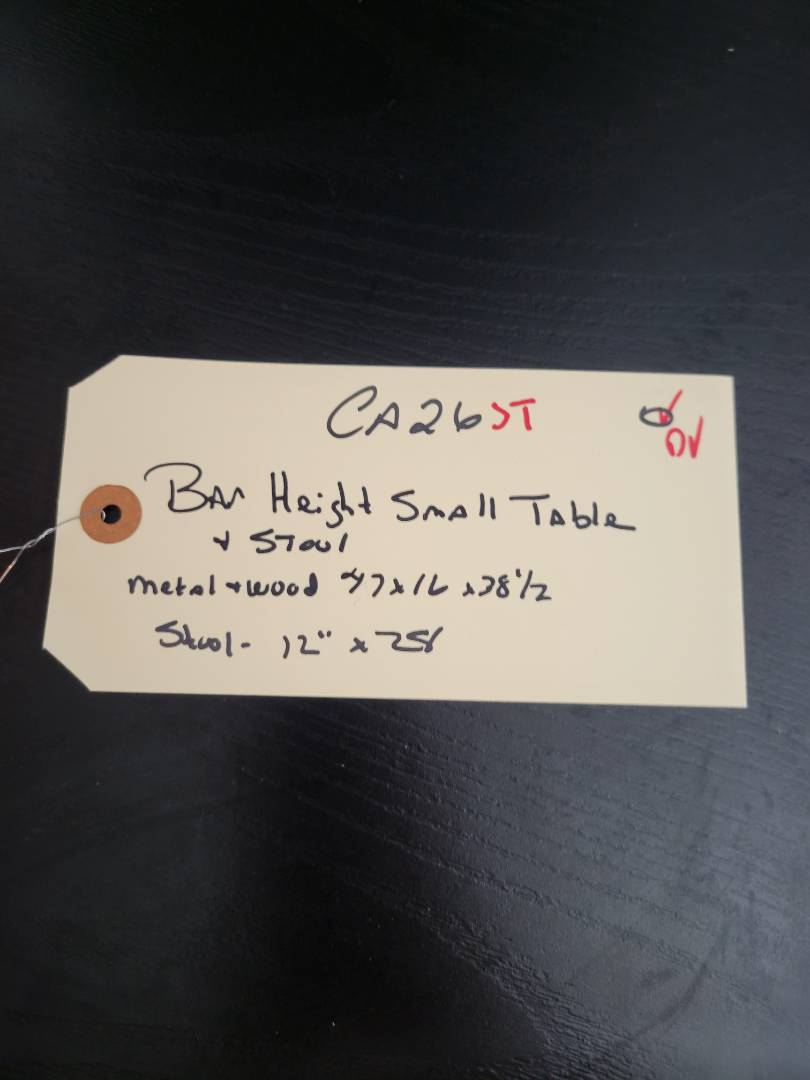 CA26 ST
DV
Bar Height Small Table
+ Stool
metal + wood 47 x 16 x 38 1/2
Stool - 12" x 25